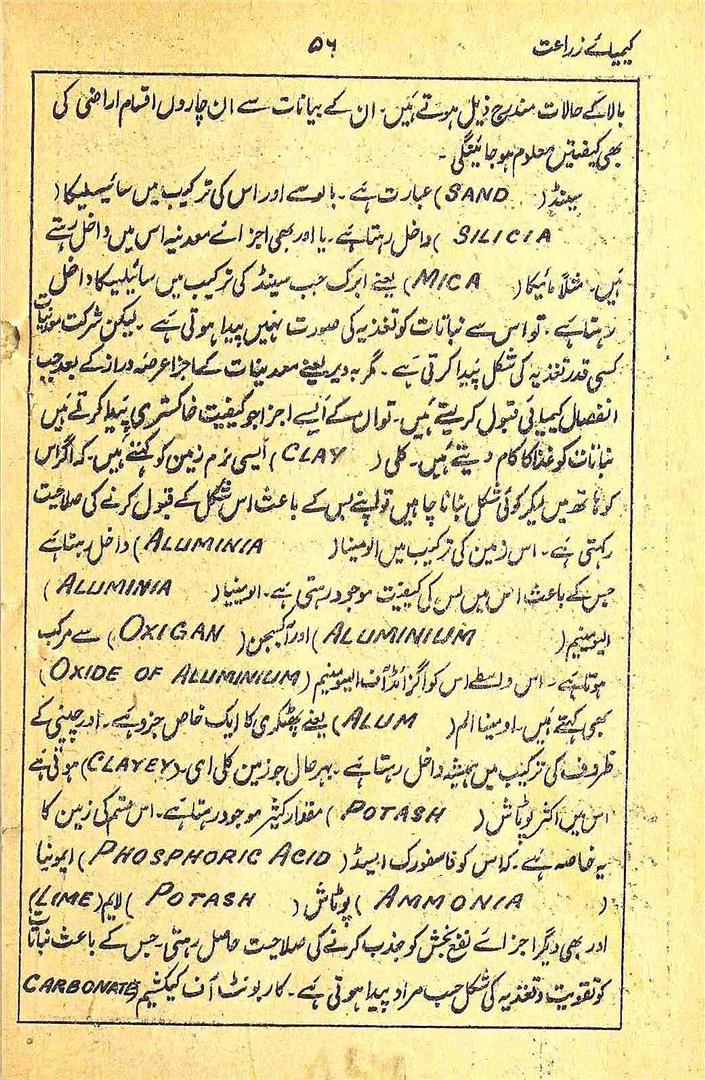 کیمیائے زراعت ۵۶
بالا کے حالات مندرج ذیل ہوتے ہیں۔ ان کے بیانات سے ان چاروں اقسام اراضی کی
بھی کیفیتیں معلوم ہو جائینگی۔
سینڈ (SAND) عبارت ہے۔ بالو سے اور اس کی ترکیب میں سائیلیکا (
SILICIA) داخل رہتا ہے۔ یا اور بھی اجزائے معدنیہ اس میں داخل رہتے
ہیں۔ مثلاً مائیکا (MICA) یعنے ابرک جب سینڈ کی ترکیب میں سائیلیکا داخل
رہتا ہے۔ تو اس سے نباتات کو تغذیہ کی صورت نہیں پیدا ہوتی ہے۔ لیکن شرکت معدنیات
کسی قدر تغذیہ کی شکل پیدا کرتی ہے۔ مگر بہ دیر یعنے معدنیات کے اجزا عرصہ دراز کے بعد جب
انفصال کیمیائی قبول کر لیتے ہیں۔ تو ان کے ایسے اجزا جو کیفیت خاکستری پیدا کرتے ہیں
نباتات کو غذا کا کام دیتے ہیں۔ کلی (CLAY) ایسی نرم زمین کو کہتے ہیں۔ کہ اگر اس
کو ہاتھ میں لیکر کوئی شکل بنانا چاہیں تو اپنے لس کے باعث اس شکل کے قبول کرنے کی صلاحیت
رکہتی ہے۔ اس زمین کی ترکیب میں الومینا (ALUMINIA) داخل رہتا ہے
جس کے باعث اس میں لس کی کیفیت موجود رہتی ہے۔ الومینیا (ALUMINIA)
الیومینیم (ALUMINIUM) اور آکسیجن (OXIGAN) سے مرکب
ہوتا ہے۔ اس واسطے اس کو اگزائڈ آف الیومینیم (OXIDE OF ALUMINIUM)
بھی کہتے ہیں۔ اومینا الم (ALUM) یعنے پھٹکری کا ایک خاص جزو ہے۔ اور چینی کے
ظروف کی ترکیب میں ہمیشہ داخل رہتا ہے۔ بہرحال جو زمین کلی ای۔ (CLAYEY) ہوتی ہے
اس میں اکثر پوٹاش (POTASH) مقدار کثیر موجود رہتا ہے۔ اس قسم کی زمین کا
یہ خاصہ ہے۔ کہ اس کو فاسفورک ایسڈ (PHOSPHORIC ACID) ایمونیا
(AMMONIA) پوٹاش (POTASH) لایم (LIME)
اور بھی دیگر اجزائے نفع بخش کو جذب کرنے کی صلاحیت حاصل رہتی۔ جس کے باعث نباتات
کو تقویت و تغذیہ کی شکل حسب مراد پیدا ہوتی ہے۔ کاربونٹ آف کیلشیم (CARBONATE